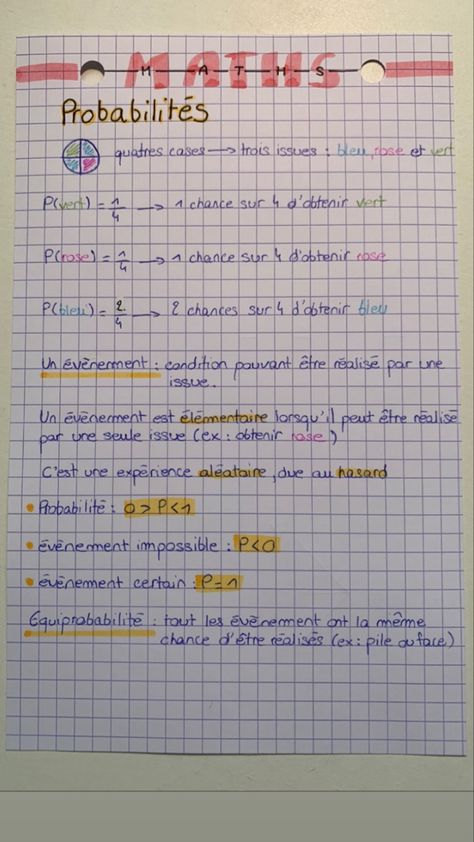 MATHS
M A T H S
Probabilités
quatres cases → trois issues : bleu, rose et vert
P(vert) = 1/4 → 1 chance sur 4 d'obtenir vert
P(rose) = 1/4 → 1 chance sur 4 d'obtenir rose
P(bleu) = 2/4 → 2 chances sur 4 d'obtenir bleu
Un évènement : condition pouvant être réalisé par une
issue.
Un évènement est élémentaire lorsqu'il peut être réalisé
par une seule issue (ex : obtenir rose)
C'est une expérience aléataire, due au hasard
• Probabilité : 0 > P < 1
• évènement impossible : P < 0
• évènement certain : P = 1
Equiprobabilité : tout les évènement ont la même
chance d'être réalisés (ex : pile ou face)